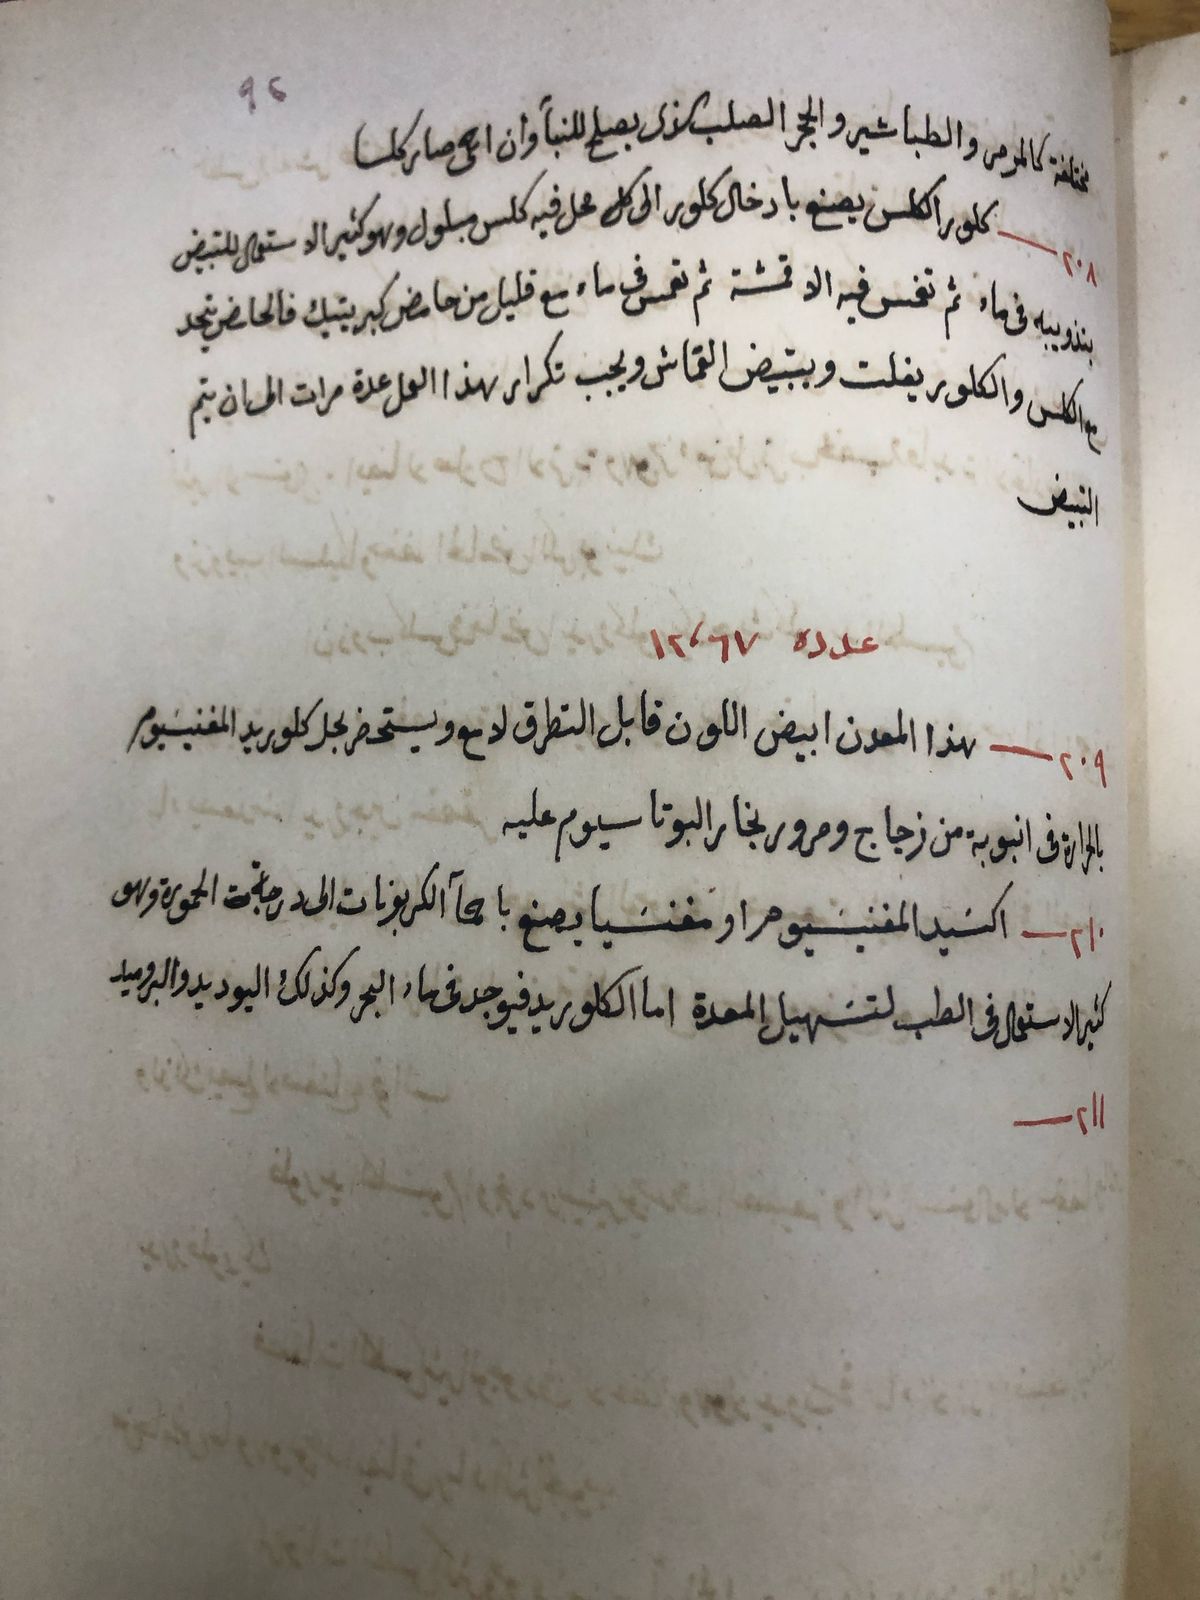 ٩٤
مختلفة كالمرمر والطباشير والحجر الصلب الذى يصلح للبنآ وان احمى صار كلسا
٢٠٨ — كلور الكلس يصنع بادخال كلور الى كل محل فيه كلس مبلول وهو كثير الاستعمال للتبيض
بتذويبه فى ماء ثم تغمس فيه الاقمشة ثم تغمس فى ماء مع قليل من حامض كبريتيك فالحامض يتحد
مع الكلس والكلور يفلت ويبتيض القماش ويجب تكرار هذا العمل عدة مرات الى ان يتم
التبيض
عدده
٢٠٩ — هذا المعدن ابيض اللون قابل التطرق لامع ويستحضر بحل كلوريد المغنيسيوم
بالحرارة فى انبوبة من زجاج ومرور بخار البوتاسيوم عليه
٢١٠ — اكسيد المغنيسيوم او مغنسيا يصنع باحمآ الكربونات الى درجة الحمورة وهو
كثير الاستعمال فى الطب لتسهيل المعدة اما الكلوريد فيوجد فى ماء البحر وكذلك اليوديد والبروميد
٢١١ —